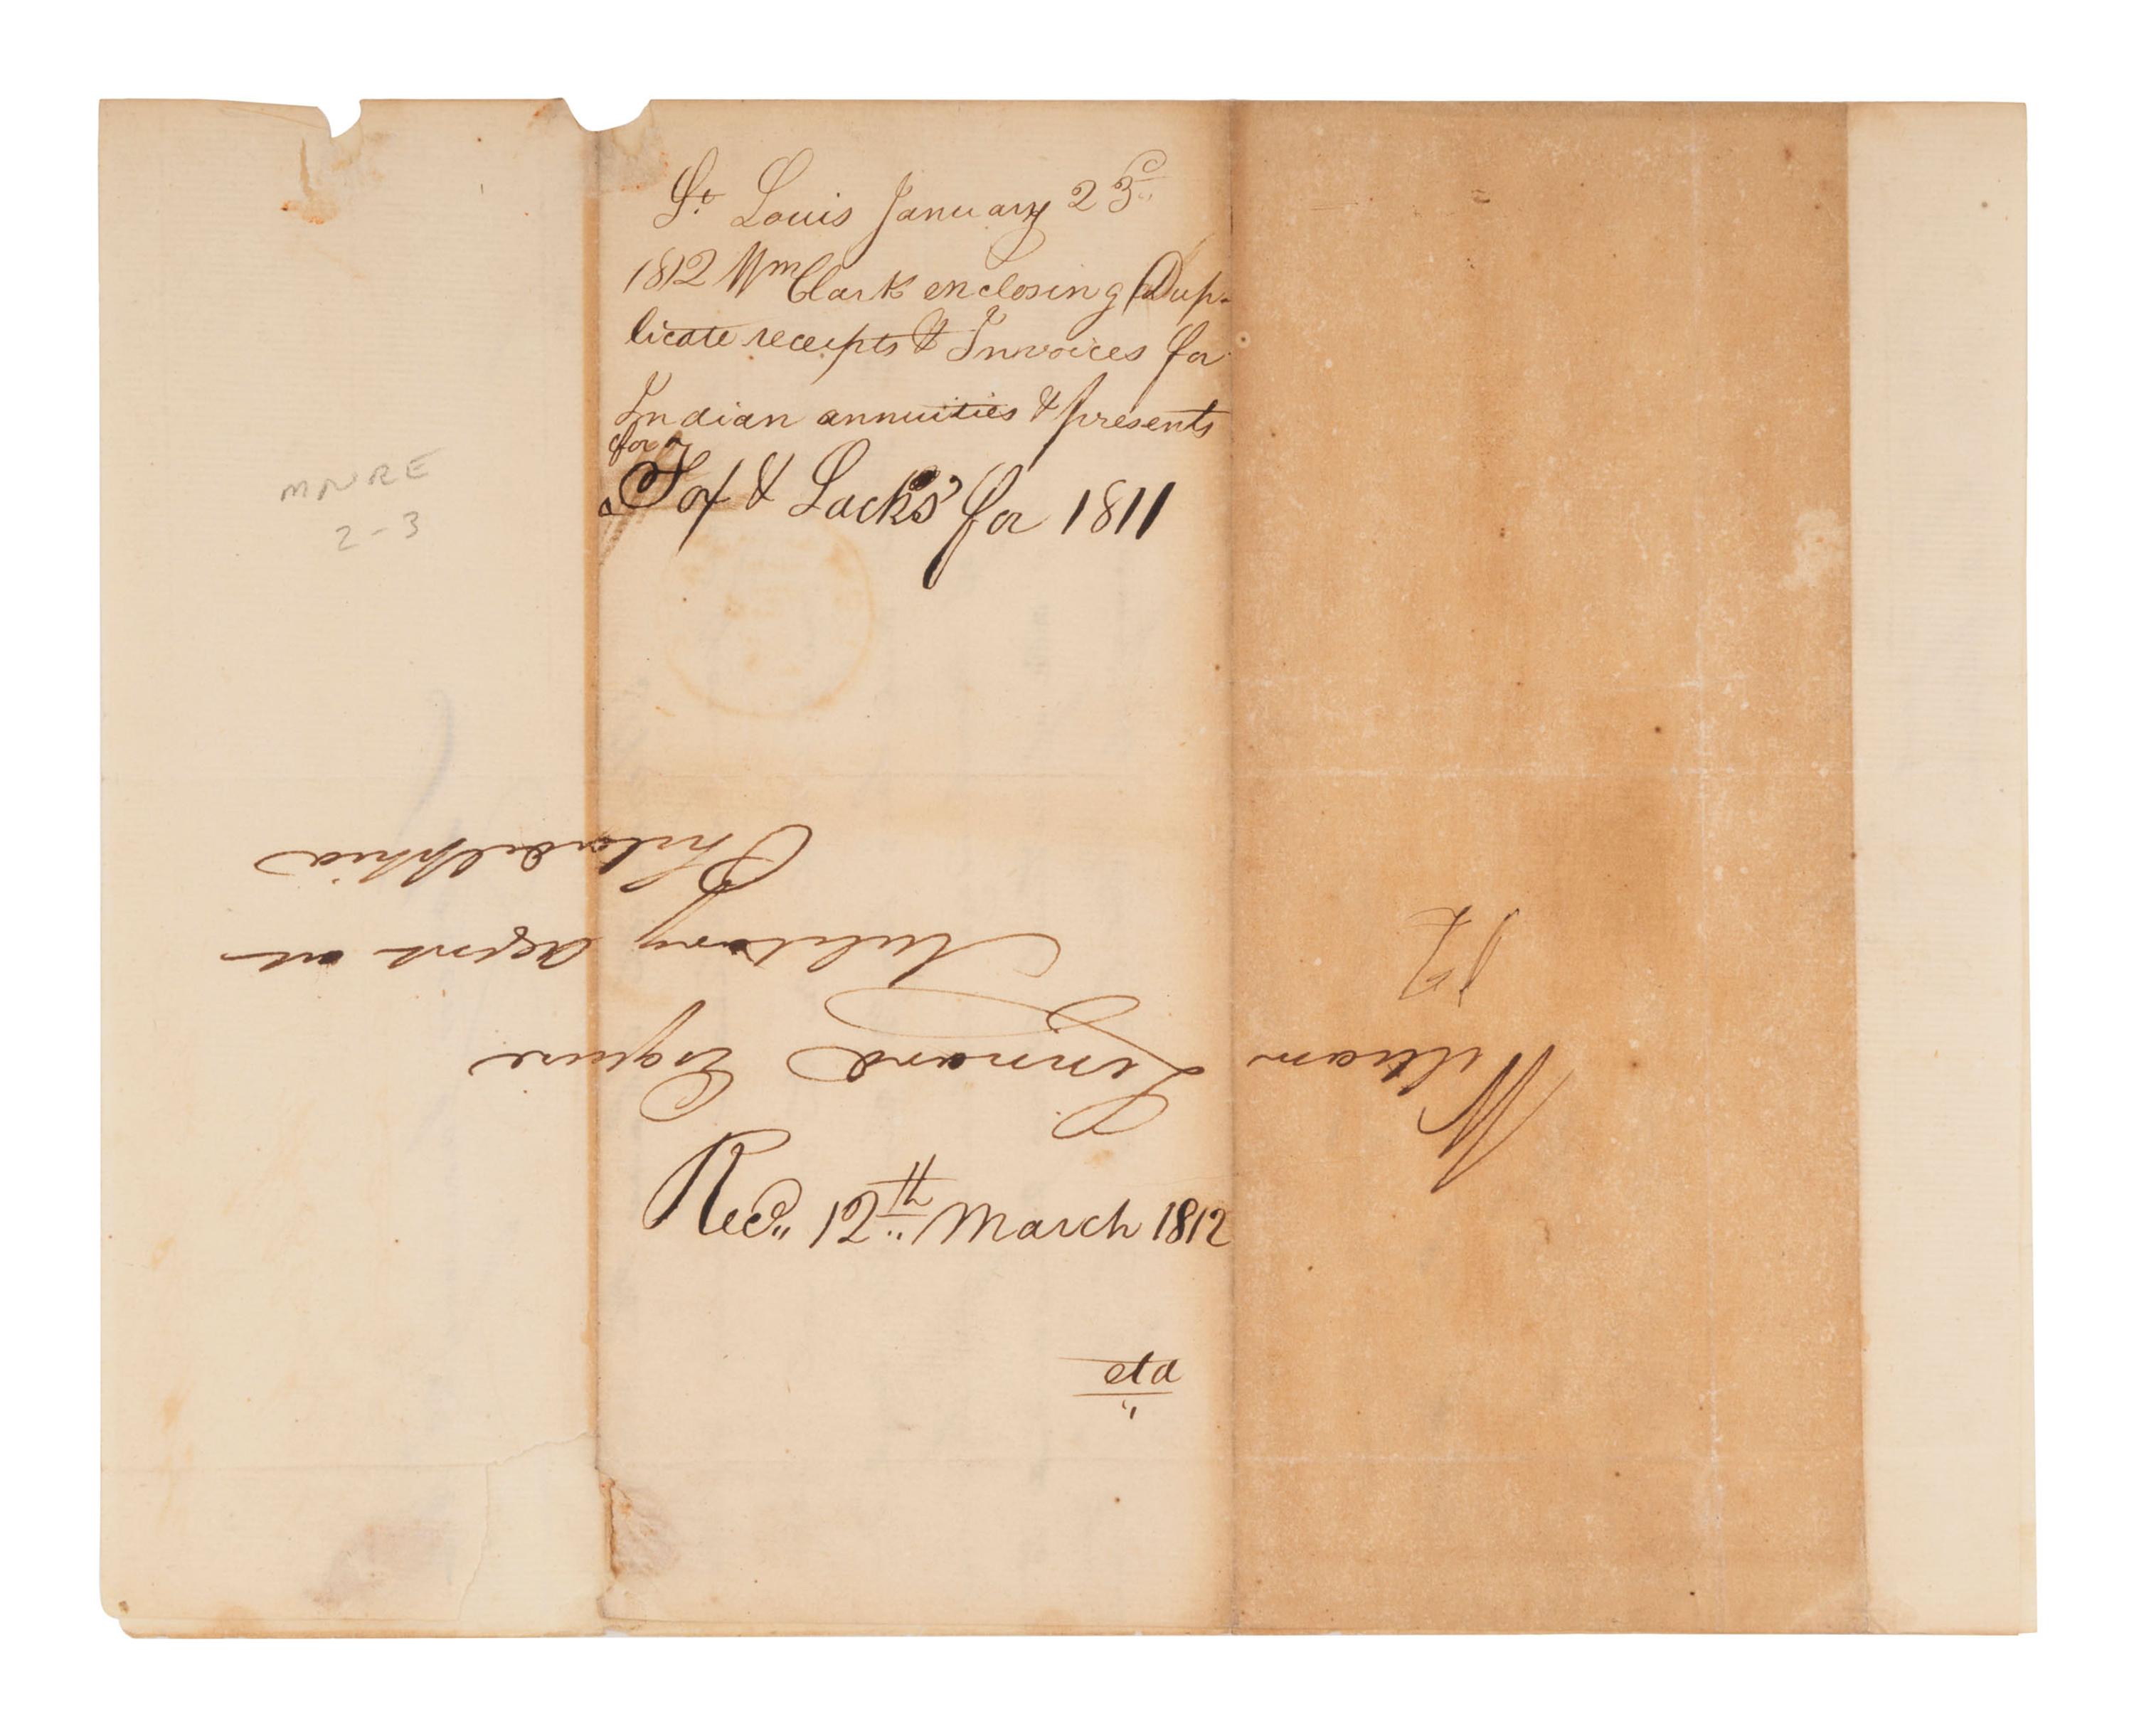 St Louis January 23d
1812 Wm Clark enclosing Dup-
licate receipts & Invoices for
Indian annuities & presents
for
Fox & Sacks' for 1811
MNRE
2-3
William Linnard Esquire
Military agent at
Philadelphia
Recd 12th March 1812